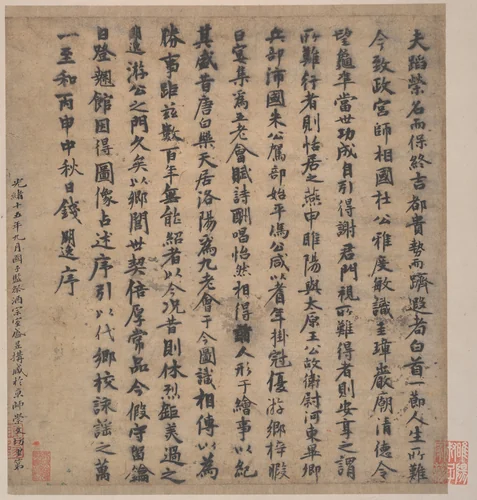 夫蹈榮名而保終吉都貴勢而躋遐耇白首一節人生所難
今致政宮師相國杜公雅度敏識圭璋巖廟清德令
望龜準當世功成自引得謝君門視所難得者則安享之謂
所難行者則恬居之燕申睢陽與太原王公故衛尉河東畢卿
兵部沛國朱公駕部始平馮公咸以耆年掛冠優游鄉梓暇
日宴集為五老會賦詩酬唱怡然相得人形于繪事以紀
其盛昔唐白樂天居洛陽為九老會于今圖識相傳以為
勝事距茲數百年無能紹者以今況昔則休烈鉅美過之
明逸游公之門久矣以鄉閭世契倍厚常品今假守留鑰
日登翹館因得圖像占述序引以代鄉校詠謠之萬
一至和丙申中秋日錢明逸序
光緒十五年九月國子監祭酒宗室盛昱於京師